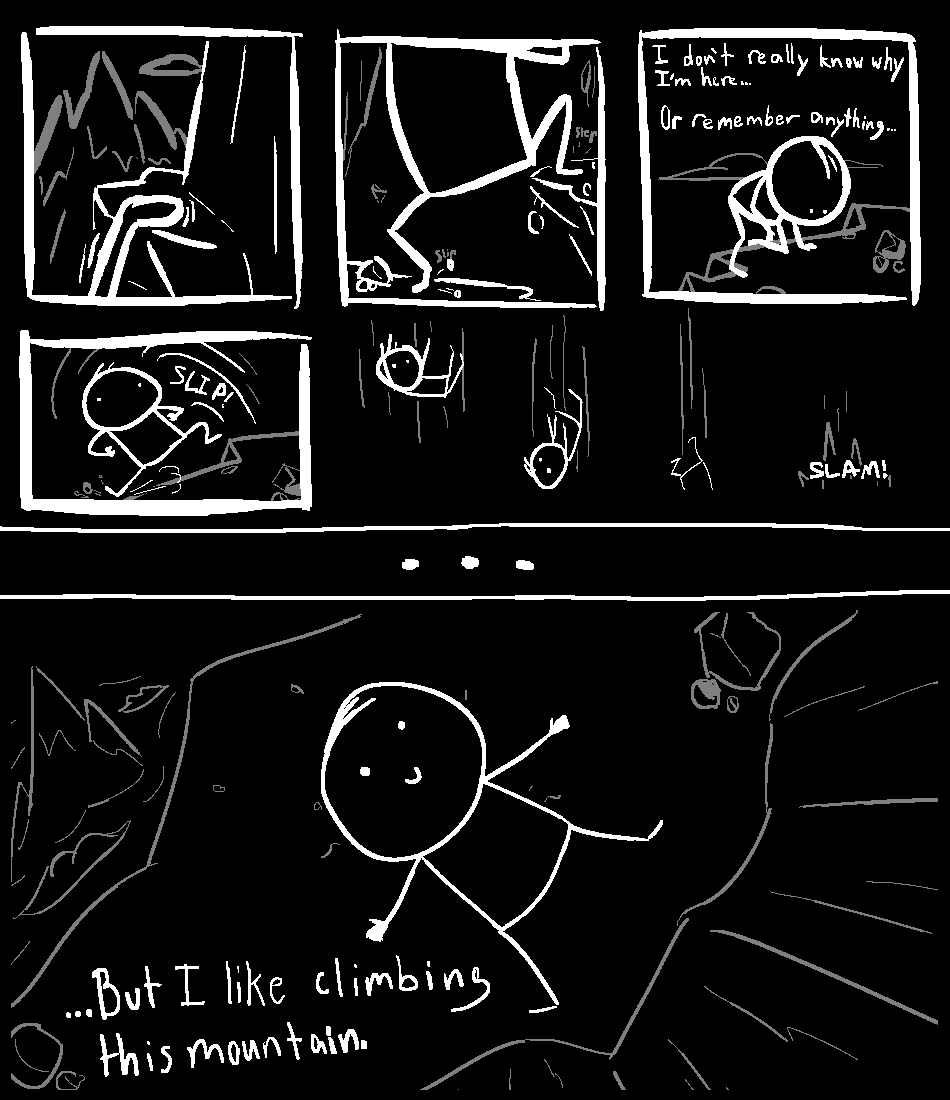 Step
Slip
I don't really know why
I'm here...
Or remember anything...
SLIP!
SLAM!
...
...But I like climbing
this mountain.